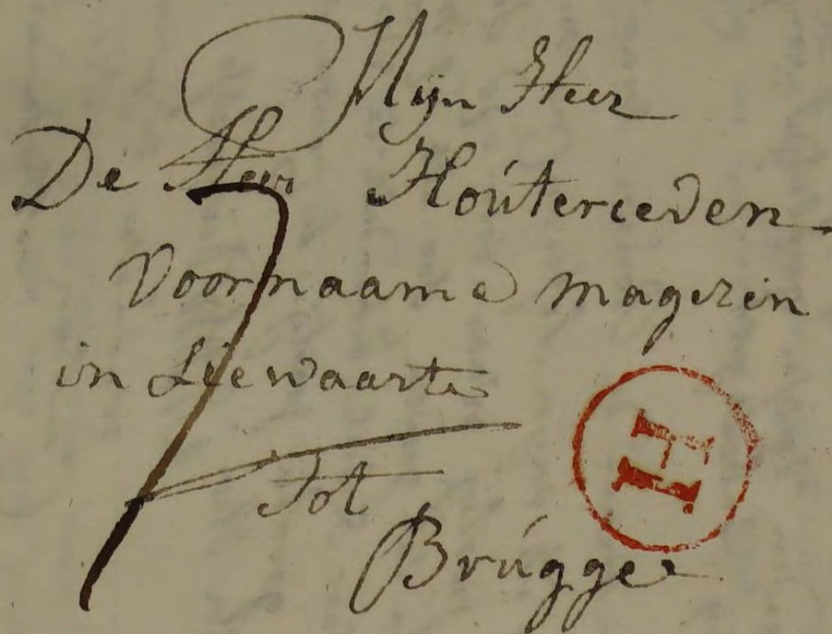 Mijn Heer
De Heer Houtereeden
Voornaame magezin
in Liewaarte
7
Tot
Brugge
H